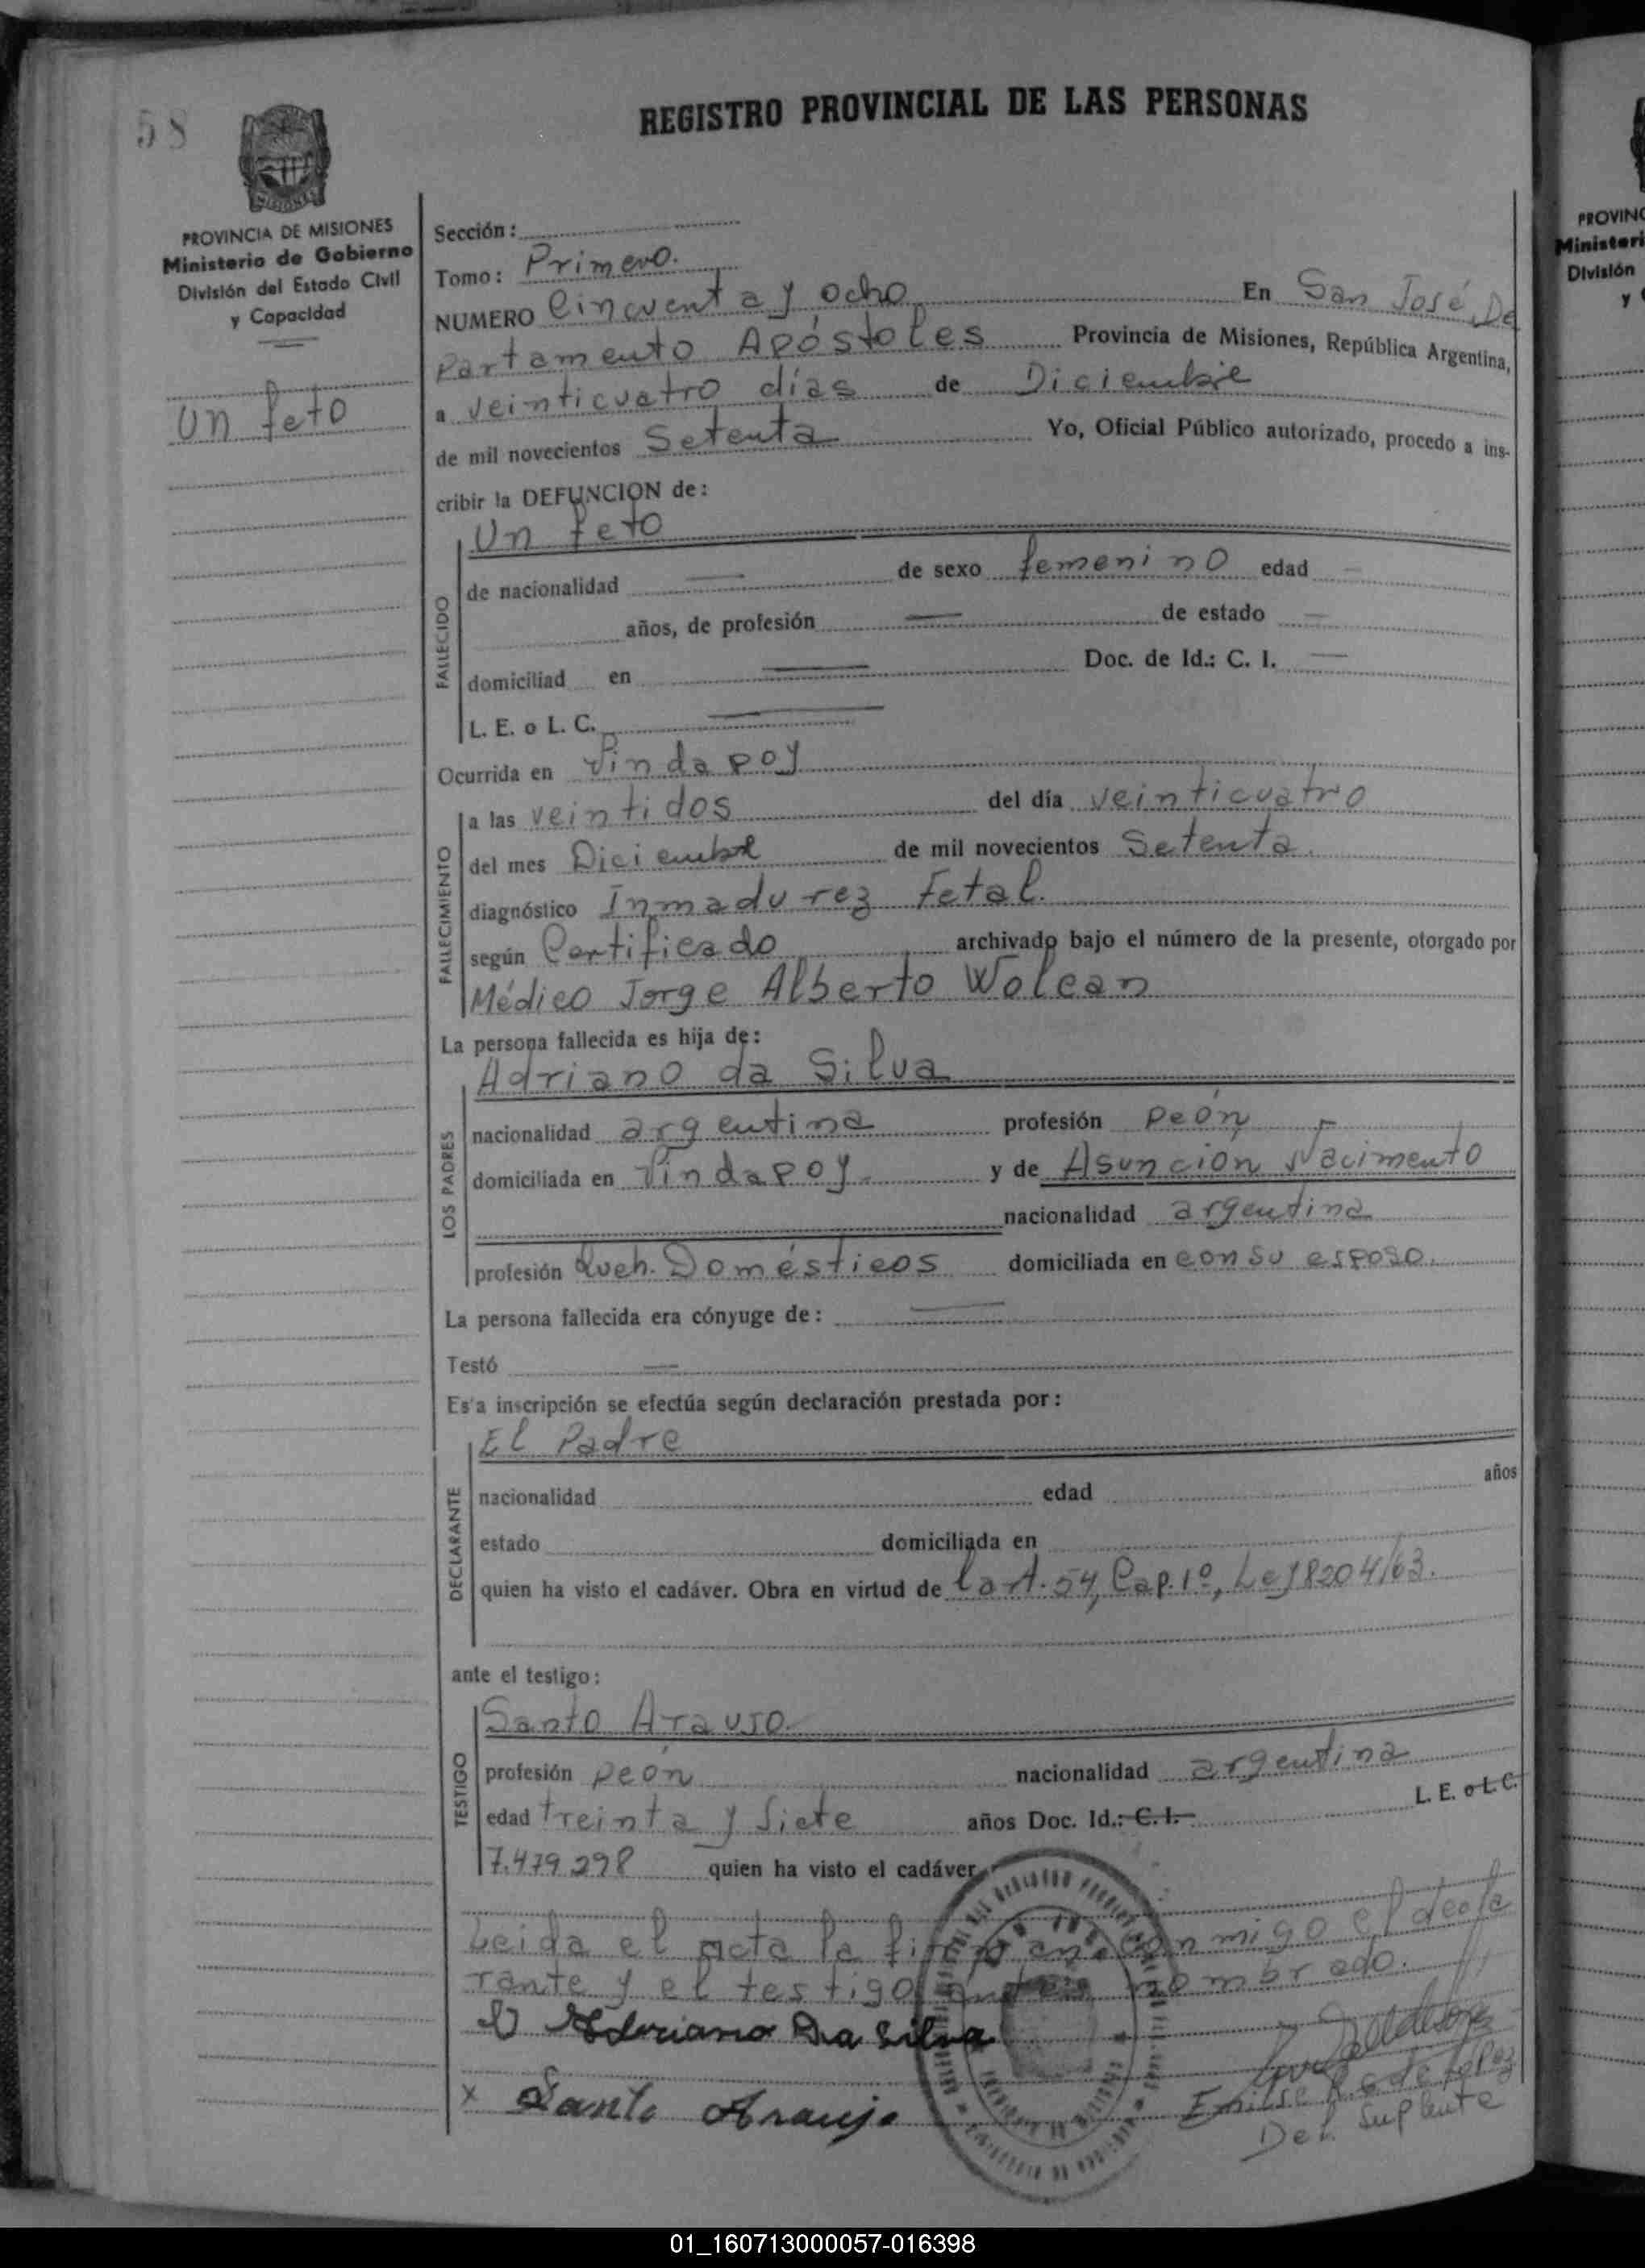 58
REGISTRO PROVINCIAL DE LAS PERSONAS
PROVINCIA DE MISIONES
Ministerio de Gobierno
División del Estado Civil
y Capacidad
Un feto
Sección:
Tomo: Primero.
NUMERO Cincuenta y ocho En San José, De
partamento Apóstoles Provincia de Misiones, República Argentina,
a veinticuatro días de Diciembre
de mil novecientos Setenta Yo, Oficial Público autorizado, procedo a ins-
cribir la DEFUNCION de:
Un feto
FALLECIDO
de nacionalidad — de sexo femenino edad —
años, de profesión — de estado —
domiciliad en — Doc. de Id.: C. I. —
L. E. o L. C. —
Ocurrida en Pindapoy
FALLECIMIENTO
a las veintidos del día veinticuatro
del mes Diciembre de mil novecientos Setenta.
diagnóstico Inmadurez Fetal.
según Certificado archivado bajo el número de la presente, otorgado por
Médico Jorge Alberto Wolcan
La persona fallecida es hija de:
Adriano da Silva
LOS PADRES
nacionalidad argentina profesión peón
domiciliada en Pindapoy. y de Asunción Nacimento
nacionalidad argentina
profesión Queh. Domésticos domiciliada en con su esposo.
La persona fallecida era cónyuge de: —
Testó —
Es'a inscripción se efectúa según declaración prestada por:
El Padre
DECLARANTE
nacionalidad edad años
estado domiciliada en
quien ha visto el cadáver. Obra en virtud de lo A. 54, Cap. 1º, Ley 8204/63.
ante el testigo:
Santo Araujo.
TESTIGO
profesión peón nacionalidad argentina
edad treinta y siete años Doc. Id.: C. I. L. E. o L. C.
7.479.298 quien ha visto el cadáver
Leida el acta la firman conmigo el decla
rante y el testigo antes nombrado.
Adriano Da Silva
x Santo Araujo
Emilse R. de López
Del. Suplente
PROVINC
Ministeri
División
y
01_160713000057-016398